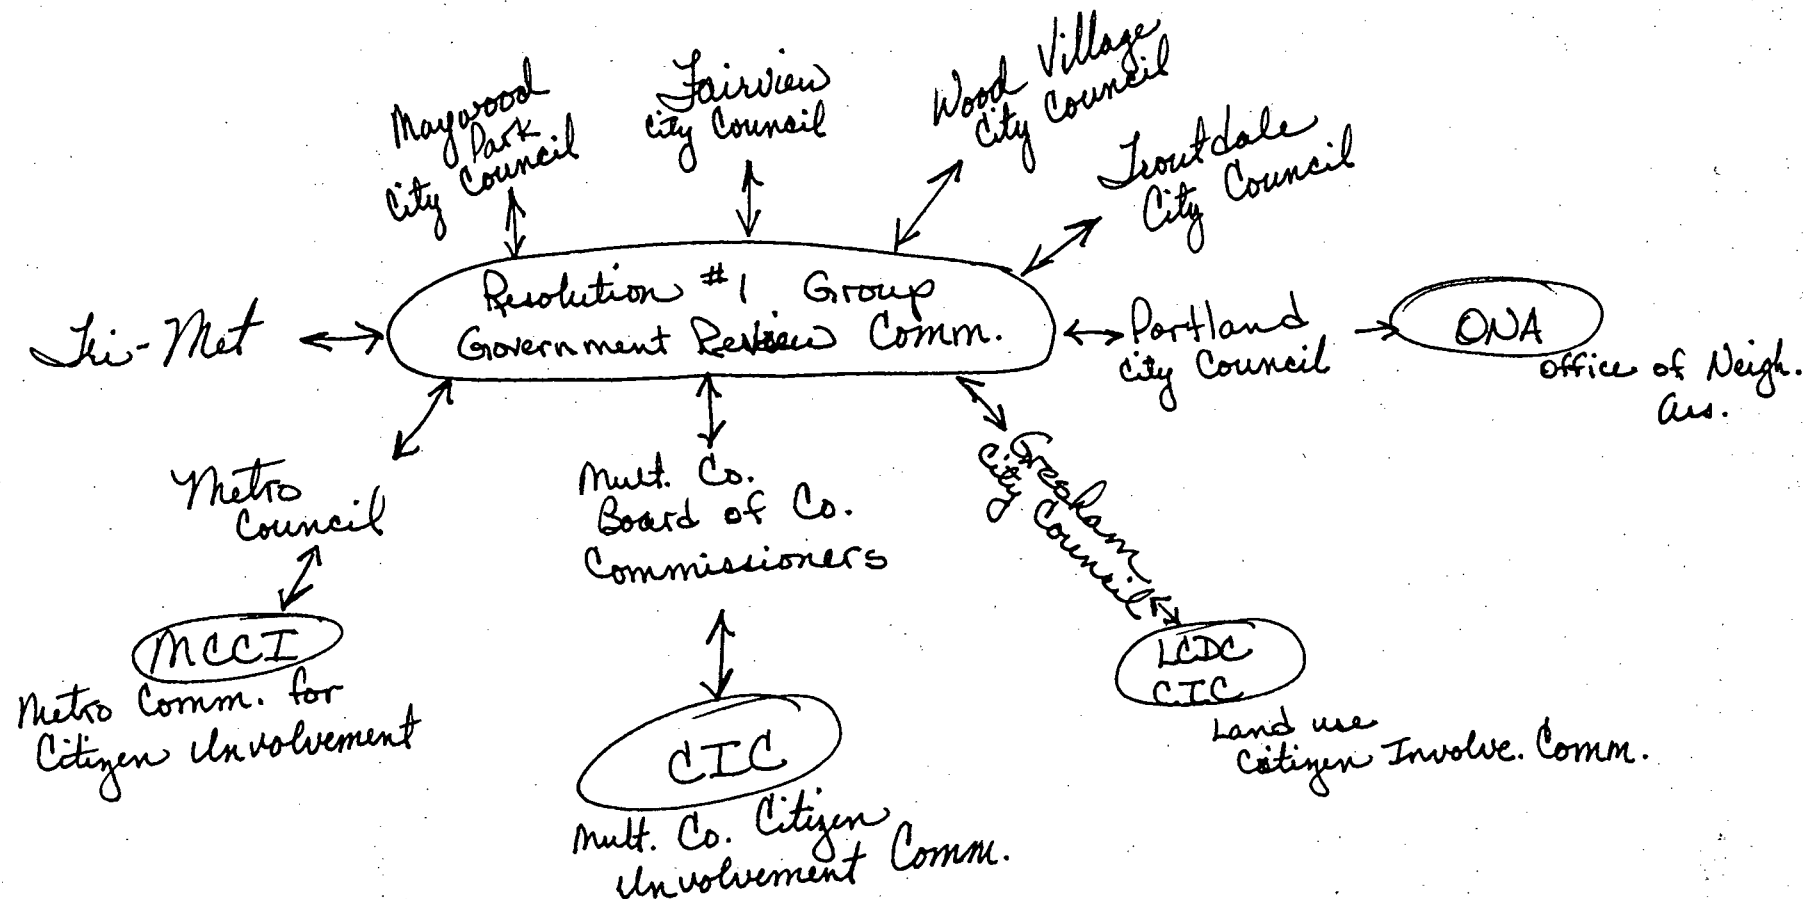 Maywood
Park
City Council
Fairview
City Council
Wood Village
City Council
Troutdale
City Council
Resolution #1 Group
Government Review Comm.
Tri-Met
Portland
City Council
ONA
Office of Neigh.
Ass.
Metro
Council
Mult. Co.
Board of Co.
Commissioners
Gresham
City Council
MCCI
Metro Comm. for
Citizen Involvement
CIC
Mult. Co. Citizen
Involvement Comm.
LCDC
CIC
Land use
Citizen Involve. Comm.